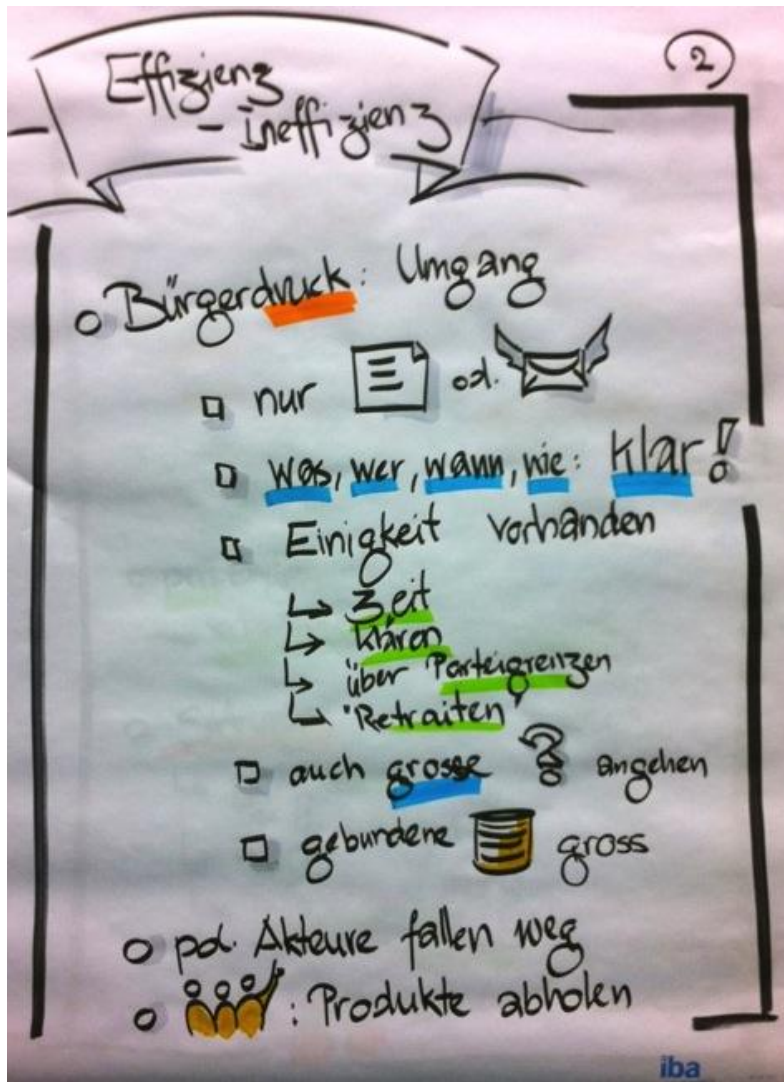 2
Effizienz
- Ineffizienz
Bürgerdruck: Umgang
nur od.
was, wer, wann, wie: klar!
Einigkeit vorhanden
Zeit
klären
über Parteigrenzen
"Retraiten"
auch grosse ? angehen
gebundene gross
pol. Akteure fallen weg
: Produkte abholen
iba